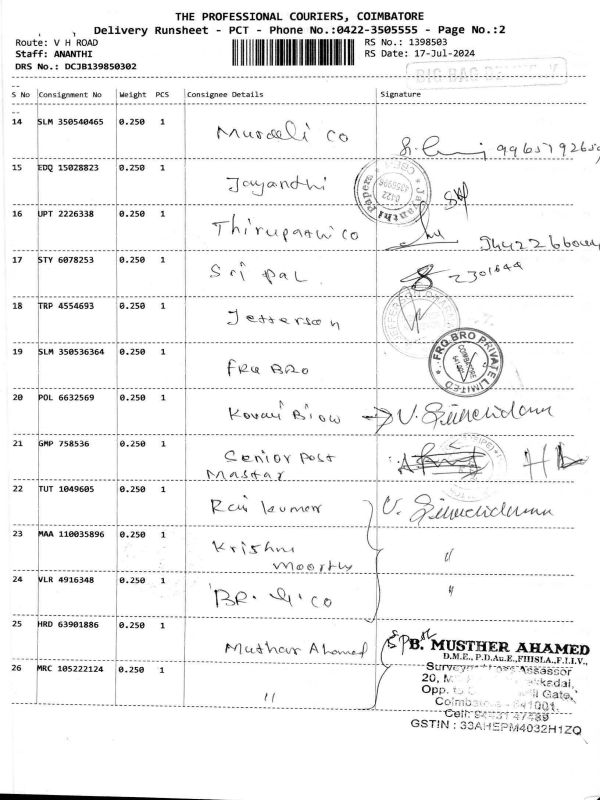 THE PROFESSIONAL COURIERS, COIMBATORE
Delivery Runsheet - PCT - Phone No.:0422-3505555 - Page No.:2
Route: V H ROAD RS No.: 1398503
Staff: ANANTHI RS Date: 17-Jul-2024
DRS No.: DCJB139850302
BIG BAG
S No Consignment No Weight PCS Consignee Details Signature
14 SLM 350540465 0.250 1 Muraeli co
15 EDQ 15028823 0.250 1 Jayanthi
Jayanthi Papers
0422
16 UPT 2226338 0.250 1 Thirupathi co
17 STY 6078253 0.250 1 Sri pal 2301644
18 TRP 4554693 0.250 1 Jefferson
19 SLM 350536364 0.250 1 FRQ BRO
FRQ BRO PRIVATE LIMITED
COIMBATORE
20 POL 6632569 0.250 1 Kovai Biow
21 GMP 758536 0.250 1 Senior post
Mastar
22 TUT 1049605 0.250 1 Raj kumar
23 MAA 110035896 0.250 1 Krishna moorthy "
24 VLR 4916348 0.250 1 "
25 HRD 63901886 0.250 1 Muthar Ahamed
B. MUSTHER AHAMED
D.M.E., P.D.Au.E., FIIISLA., F.I.I.V.,
26 MRC 105222124 0.250 1 "
Assessor
20,
Opp. to Gate,
Coimbatore - 641001.
Cell: 94431 47489
GSTIN : 33AHEPM4032H1ZQ